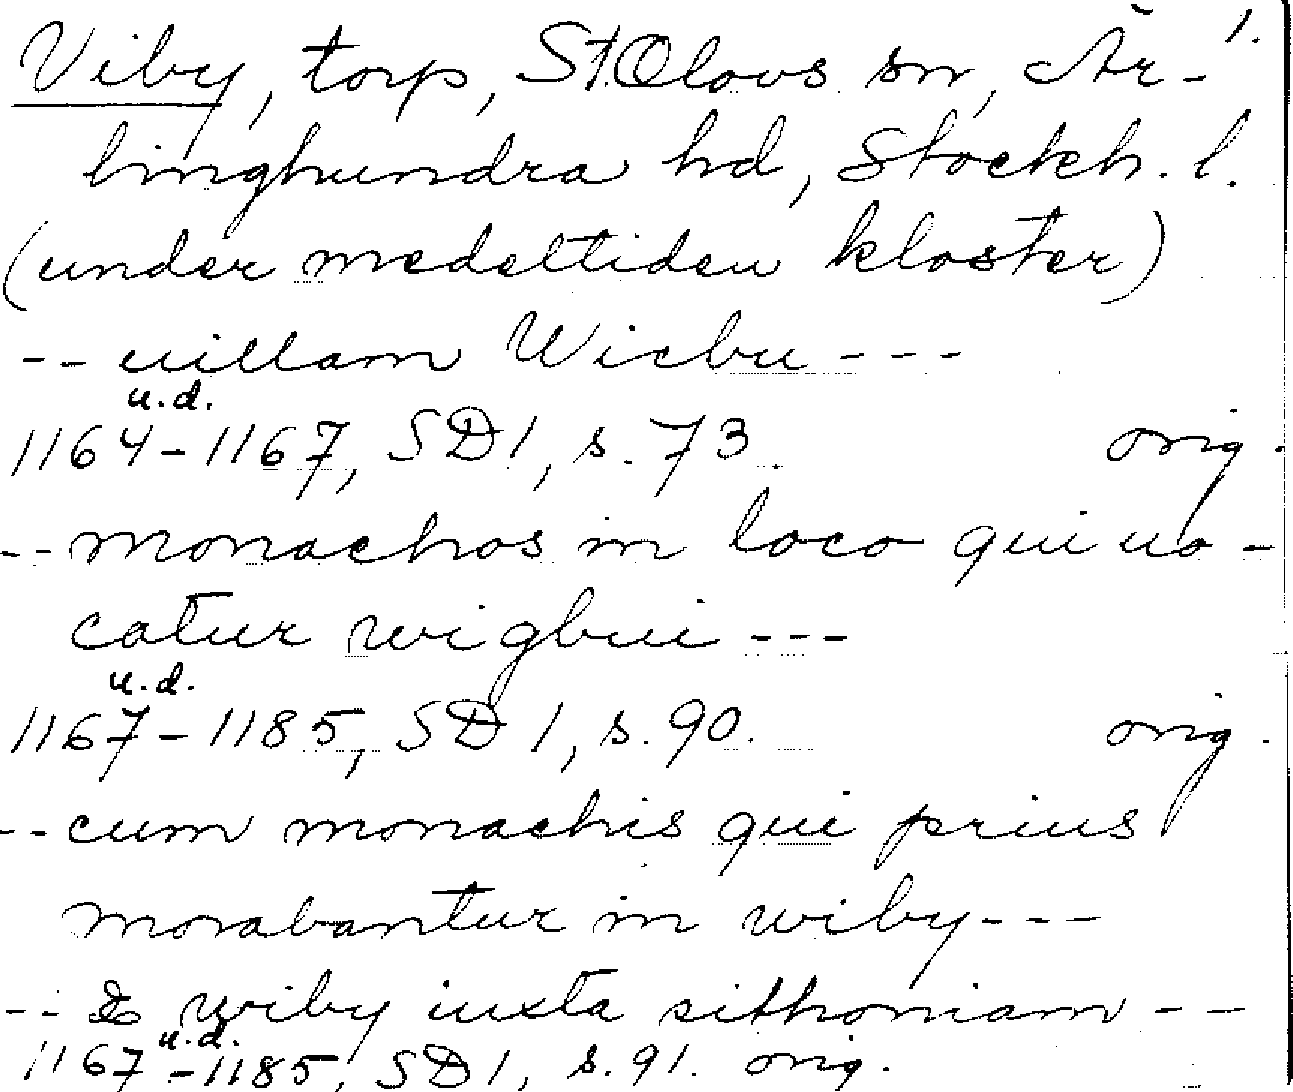 1.
Viby, torp, St. Olovs sn, Är-
linghundra hd, Stockh. l.
(under medeltiden kloster)
-- uillam Wicbu ---
u.d.
1164-1167, SD 1, s. 73. orig.
-- monachos in loco qui uo-
catur wigbui ---
u.d.
1167-1185, SD 1, s. 90. orig.
-- cum monachis qui prius
morabantur in wiby ---
-- & wiby iuxta sithoniam --
u.d.
1167-1185, SD 1, s. 91. orig.